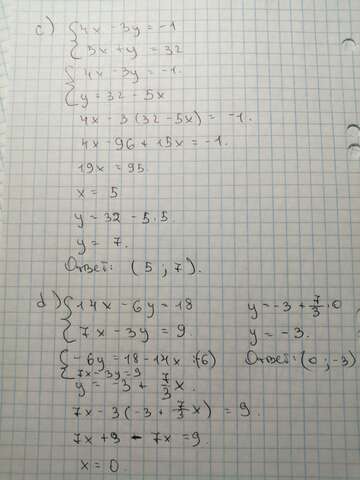 c) { 4x - 3y = -1
{ 5x + y = 32
{ 4x - 3y = -1.
{ y = 32 - 5x
4x - 3(32 - 5x) = -1.
4x - 96 + 15x = -1.
19x = 95.
x = 5
y = 32 - 5.5.
y = 7.
Ответ: (5 ; 7).
d) { 14x - 6y = 18
{ 7x - 3y = 9.
{ -6y = 18 - 14x :(6)
{ 7x - 3y = 9
y = -3 + 7/3 x.
7x - 3(-3 + 7/3 x) = 9.
7x + 9 - 7x = 9.
x = 0.
y = -3 + 7/3 · 0
y = -3.
Ответ: (0 ; -3)